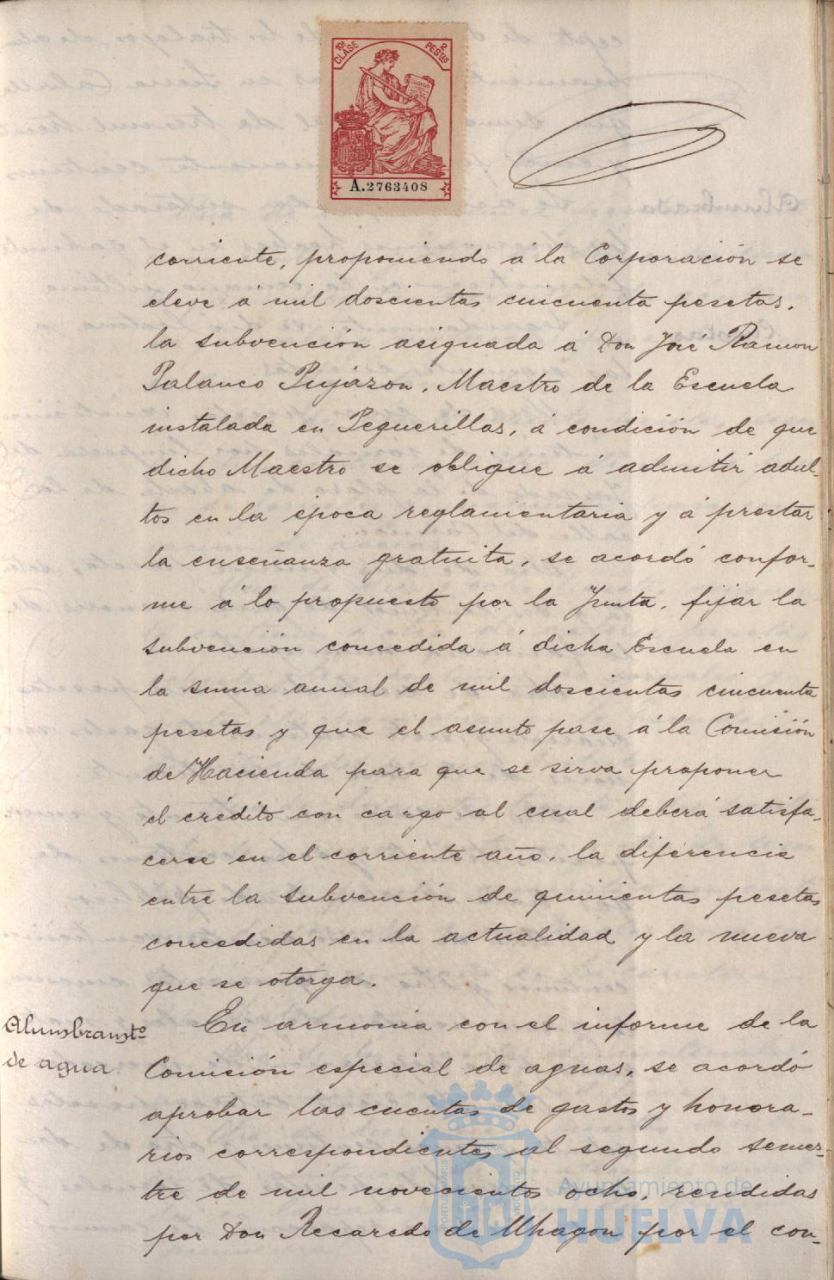 10ª CLASE
2 PESTAS
A.2763408
corriente, proponiendo á la Corporación se
eleve á mil doscientas cincuenta pesetas,
la subvención asignada á Don José Ramon
Palanco Pujazon, Maestro de la Escuela
instalada en Peguerillas, á condición de que
dicho Maestro se obligue á admitir adul-
tos en la época reglamentaria y á prestar
la enseñanza gratuita, se acordó confor-
me á lo propuesto por la Junta, fijar la
subvención concedida á dicha Escuela en
la suma anual de mil doscientas cincuenta
pesetas y que el asunto pase á la Comisión
de Hacienda para que se sirva proponer
el crédito con cargo al cual deberá satisfa-
cerse en el corriente año, la diferencia
entre la subvención de quinientas pesetas
concedidas en la actualidad y la nueva
que se otorga.
Alumbramtº
de agua
En armonía con el informe de la
Comisión especial de aguas, se acordó
aprobar las cuentas de gastos y honora-
rios correspondientes al segundo semes-
tre de mil novecientos ocho, rendidas
por Don Recaredo de Uhagon por el con-
Ayuntamiento de
HUELVA